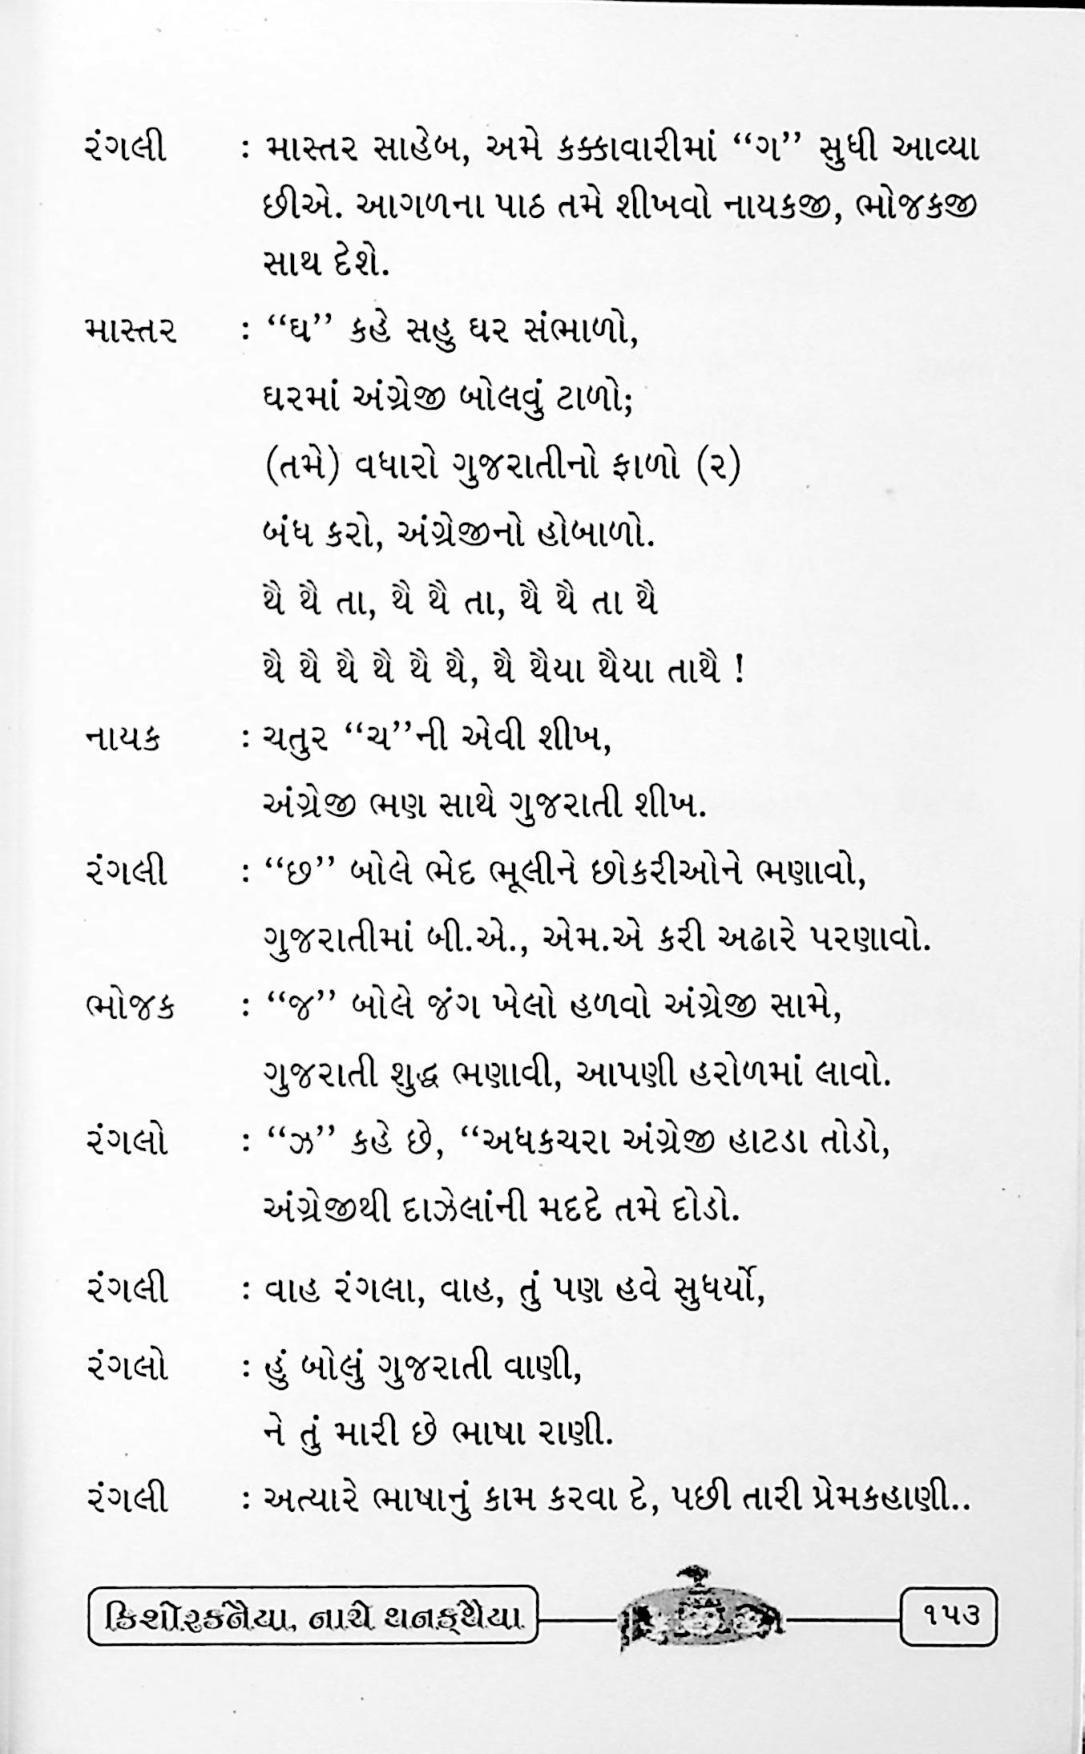 રંગલી : માસ્તર સાહેબ, અમે કક્કાવારીમાં “ગ” સુધી આવ્યા
છીએ. આગળના પાઠ તમે શીખવો નાયકજી, ભોજકજી
સાથ દેશે.
માસ્તર : “ઘ” કહે સહુ ઘર સંભાળો,
ઘરમાં અંગ્રેજી બોલવું ટાળો;
(તમે) વધારો ગુજરાતીનો ફાળો (૨)
બંધ કરો, અંગ્રેજીનો હોબાળો.
થૈ થૈ તા, થૈ થૈ તા, થૈ થૈ તા થૈ
થૈ થૈ થૈ થૈ થૈ થૈ, થૈ થૈયા થૈયા તાથૈ !
નાયક : ચતુર “ચ”ની એવી શીખ,
અંગ્રેજી ભણ સાથે ગુજરાતી શીખ.
રંગલી : “છ” બોલે ભેદ ભૂલીને છોકરીઓને ભણાવો,
ગુજરાતીમાં બી.એ., એમ.એ કરી અઢારે પરણાવો.
ભોજક : “જ” બોલે જંગ ખેલો હળવો અંગ્રેજી સામે,
ગુજરાતી શુદ્ધ ભણાવી, આપણી હરોળમાં લાવો.
રંગલો : “ઝ” કહે છે, “અધકચરા અંગ્રેજી હાટડા તોડો,
અંગ્રેજીથી દાઝેલાંની મદદે તમે દોડો.
રંગલી : વાહ રંગલા, વાહ, તું પણ હવે સુધર્યો,
રંગલો : હું બોલું ગુજરાતી વાણી,
ને તું મારી છે ભાષા રાણી.
રંગલી : અત્યારે ભાષાનું કામ કરવા દે, પછી તારી પ્રેમકહાણી..
કિશોરકનૈયા, નાચે થનક્થૈયા ૧૫૩